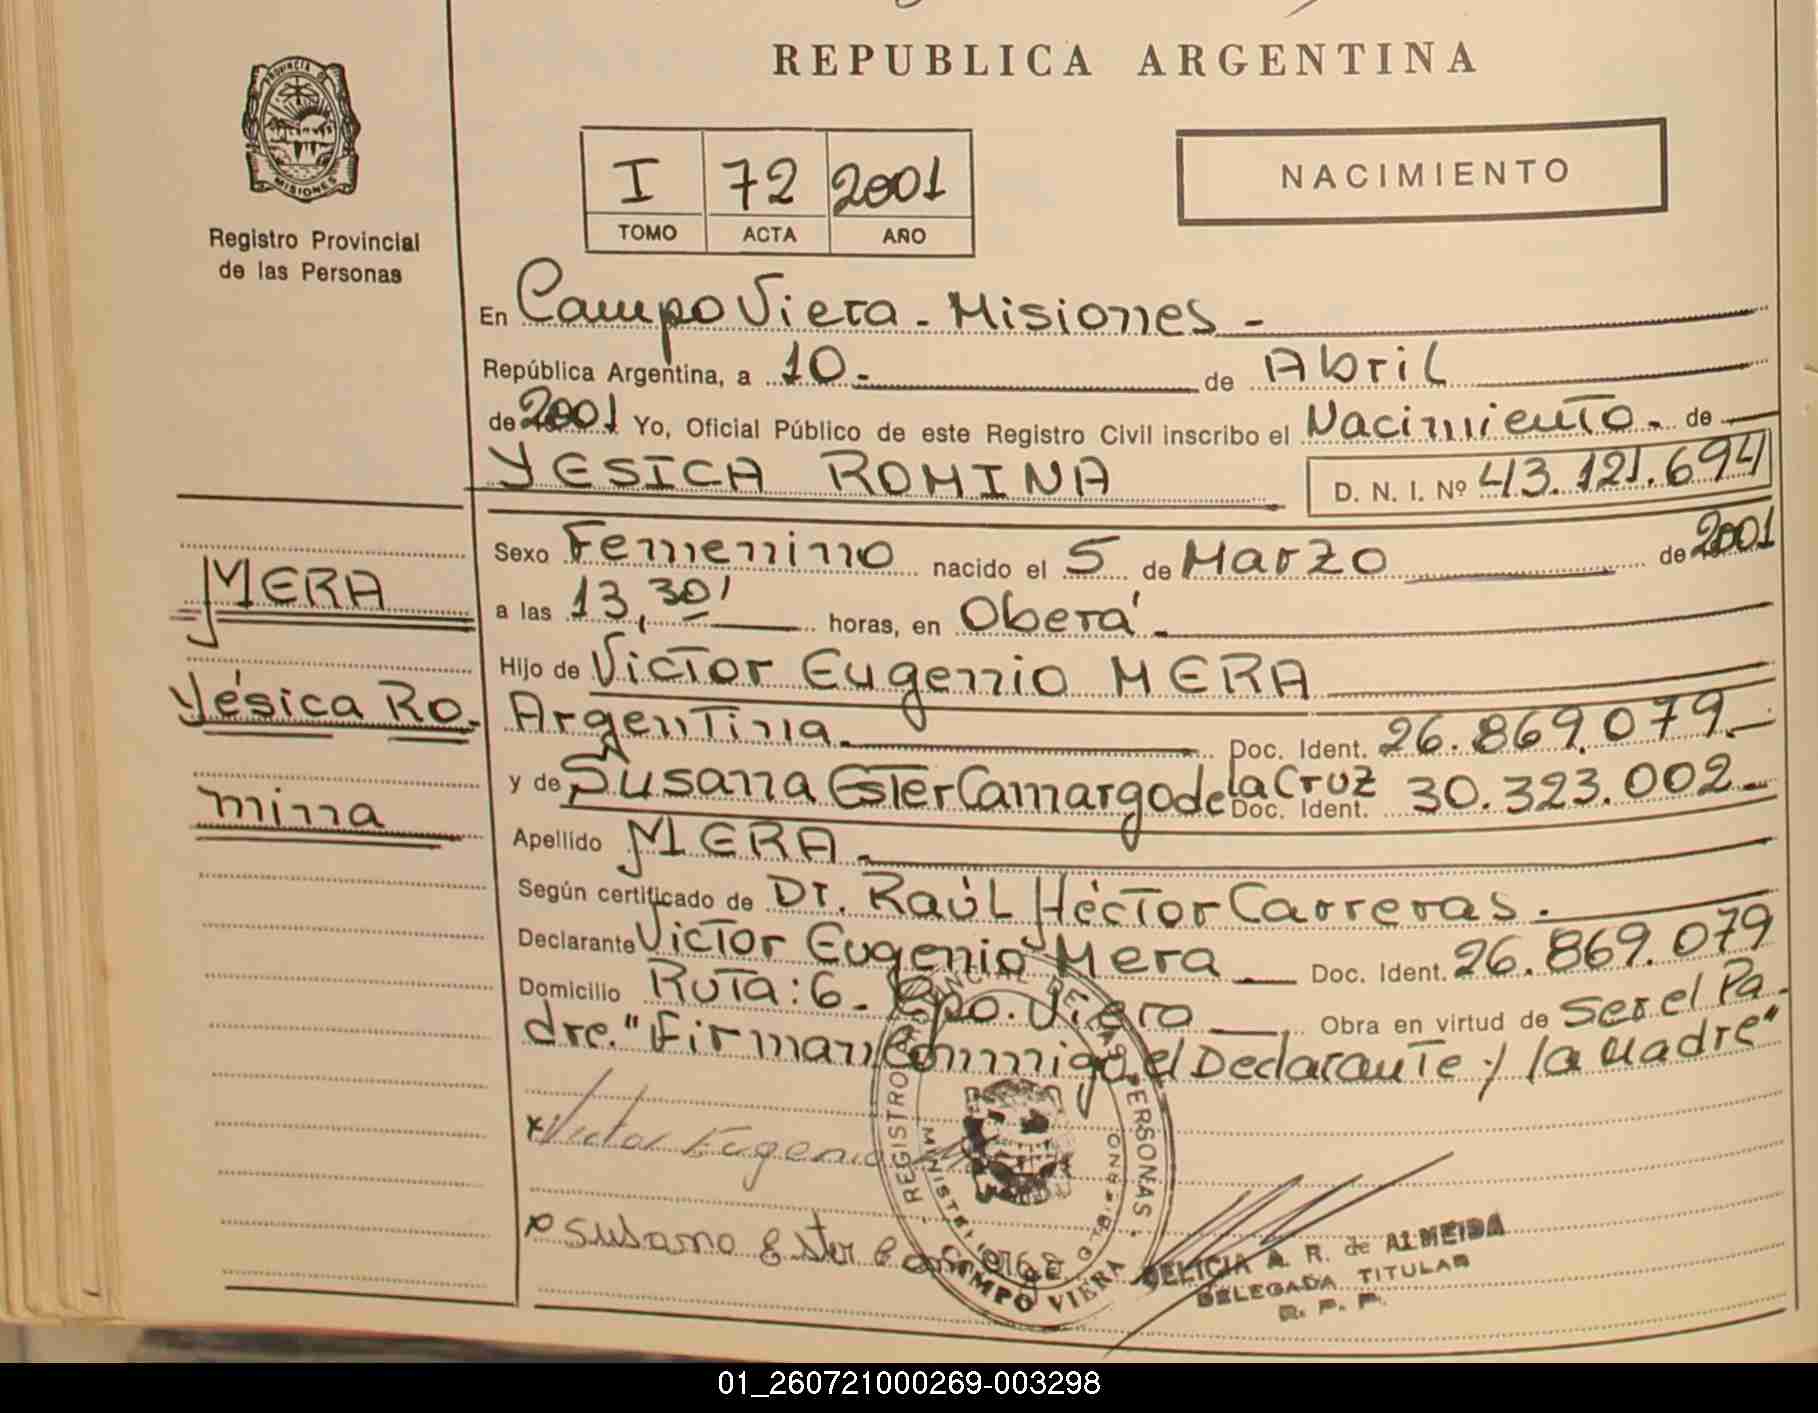 REPUBLICA ARGENTINA
PROVINCIA DE
MISIONES
Registro Provincial
de las Personas
I 72 2001
TOMO ACTA AÑO
NACIMIENTO
En Campo Viera - Misiones -
República Argentina, a 10 - de Abril
de 2001 Yo, Oficial Público de este Registro Civil inscribo el Nacimiento - de
YESICA ROMINA D. N. I. Nº 43.121.694
Sexo Femenino nacido el 5 de Marzo de 2001
a las 13,30' horas, en Oberá -
Hijo de Victor Eugenio MERA
Argentina - Doc. Ident. 26.869.079.-
y de Susana Ester Camargo de la Cruz Doc. Ident. 30.323.002 -
Apellido MERA -
Según certificado de Dr. Raúl Héctor Carreras -
Declarante Victor Eugenio Mera - Doc. Ident. 26.869.079
Domicilio Ruta: 6 - Cpo. Viera Obra en virtud de ser el Pa-
dre. "Firman Conmigo el Declarante y la Madre"
MERA
Yésica Ro-
mina
x Victor Eugenio
x Susana Ester
REGISTRO PROVINCIAL DE LAS PERSONAS
CAMPO VIERA
DELICIA A. R. de ALMEIDA
DELEGADA TITULAR
R. P. P.
01_260721000269-003298